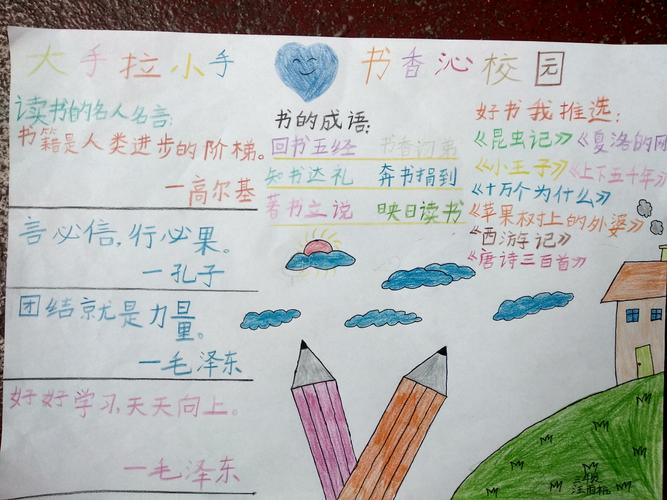 大手拉小手 书香沁校园
读书的名人名言:
书籍是人类进步的阶梯。
—高尔基
言必信,行必果。
—孔子
团结就是力量。
—毛泽东
好好学习,天天向上。
—毛泽东
书的成语:
回书五经 书香门第
知书达礼 奔书捐到
著书立说 映日读书
好书我推选:
《昆虫记》《夏洛的网
《小王子》《上下五千年》
《十万个为什么》
《苹果树上的外婆》
《西游记》
《唐诗三百首》
三年级